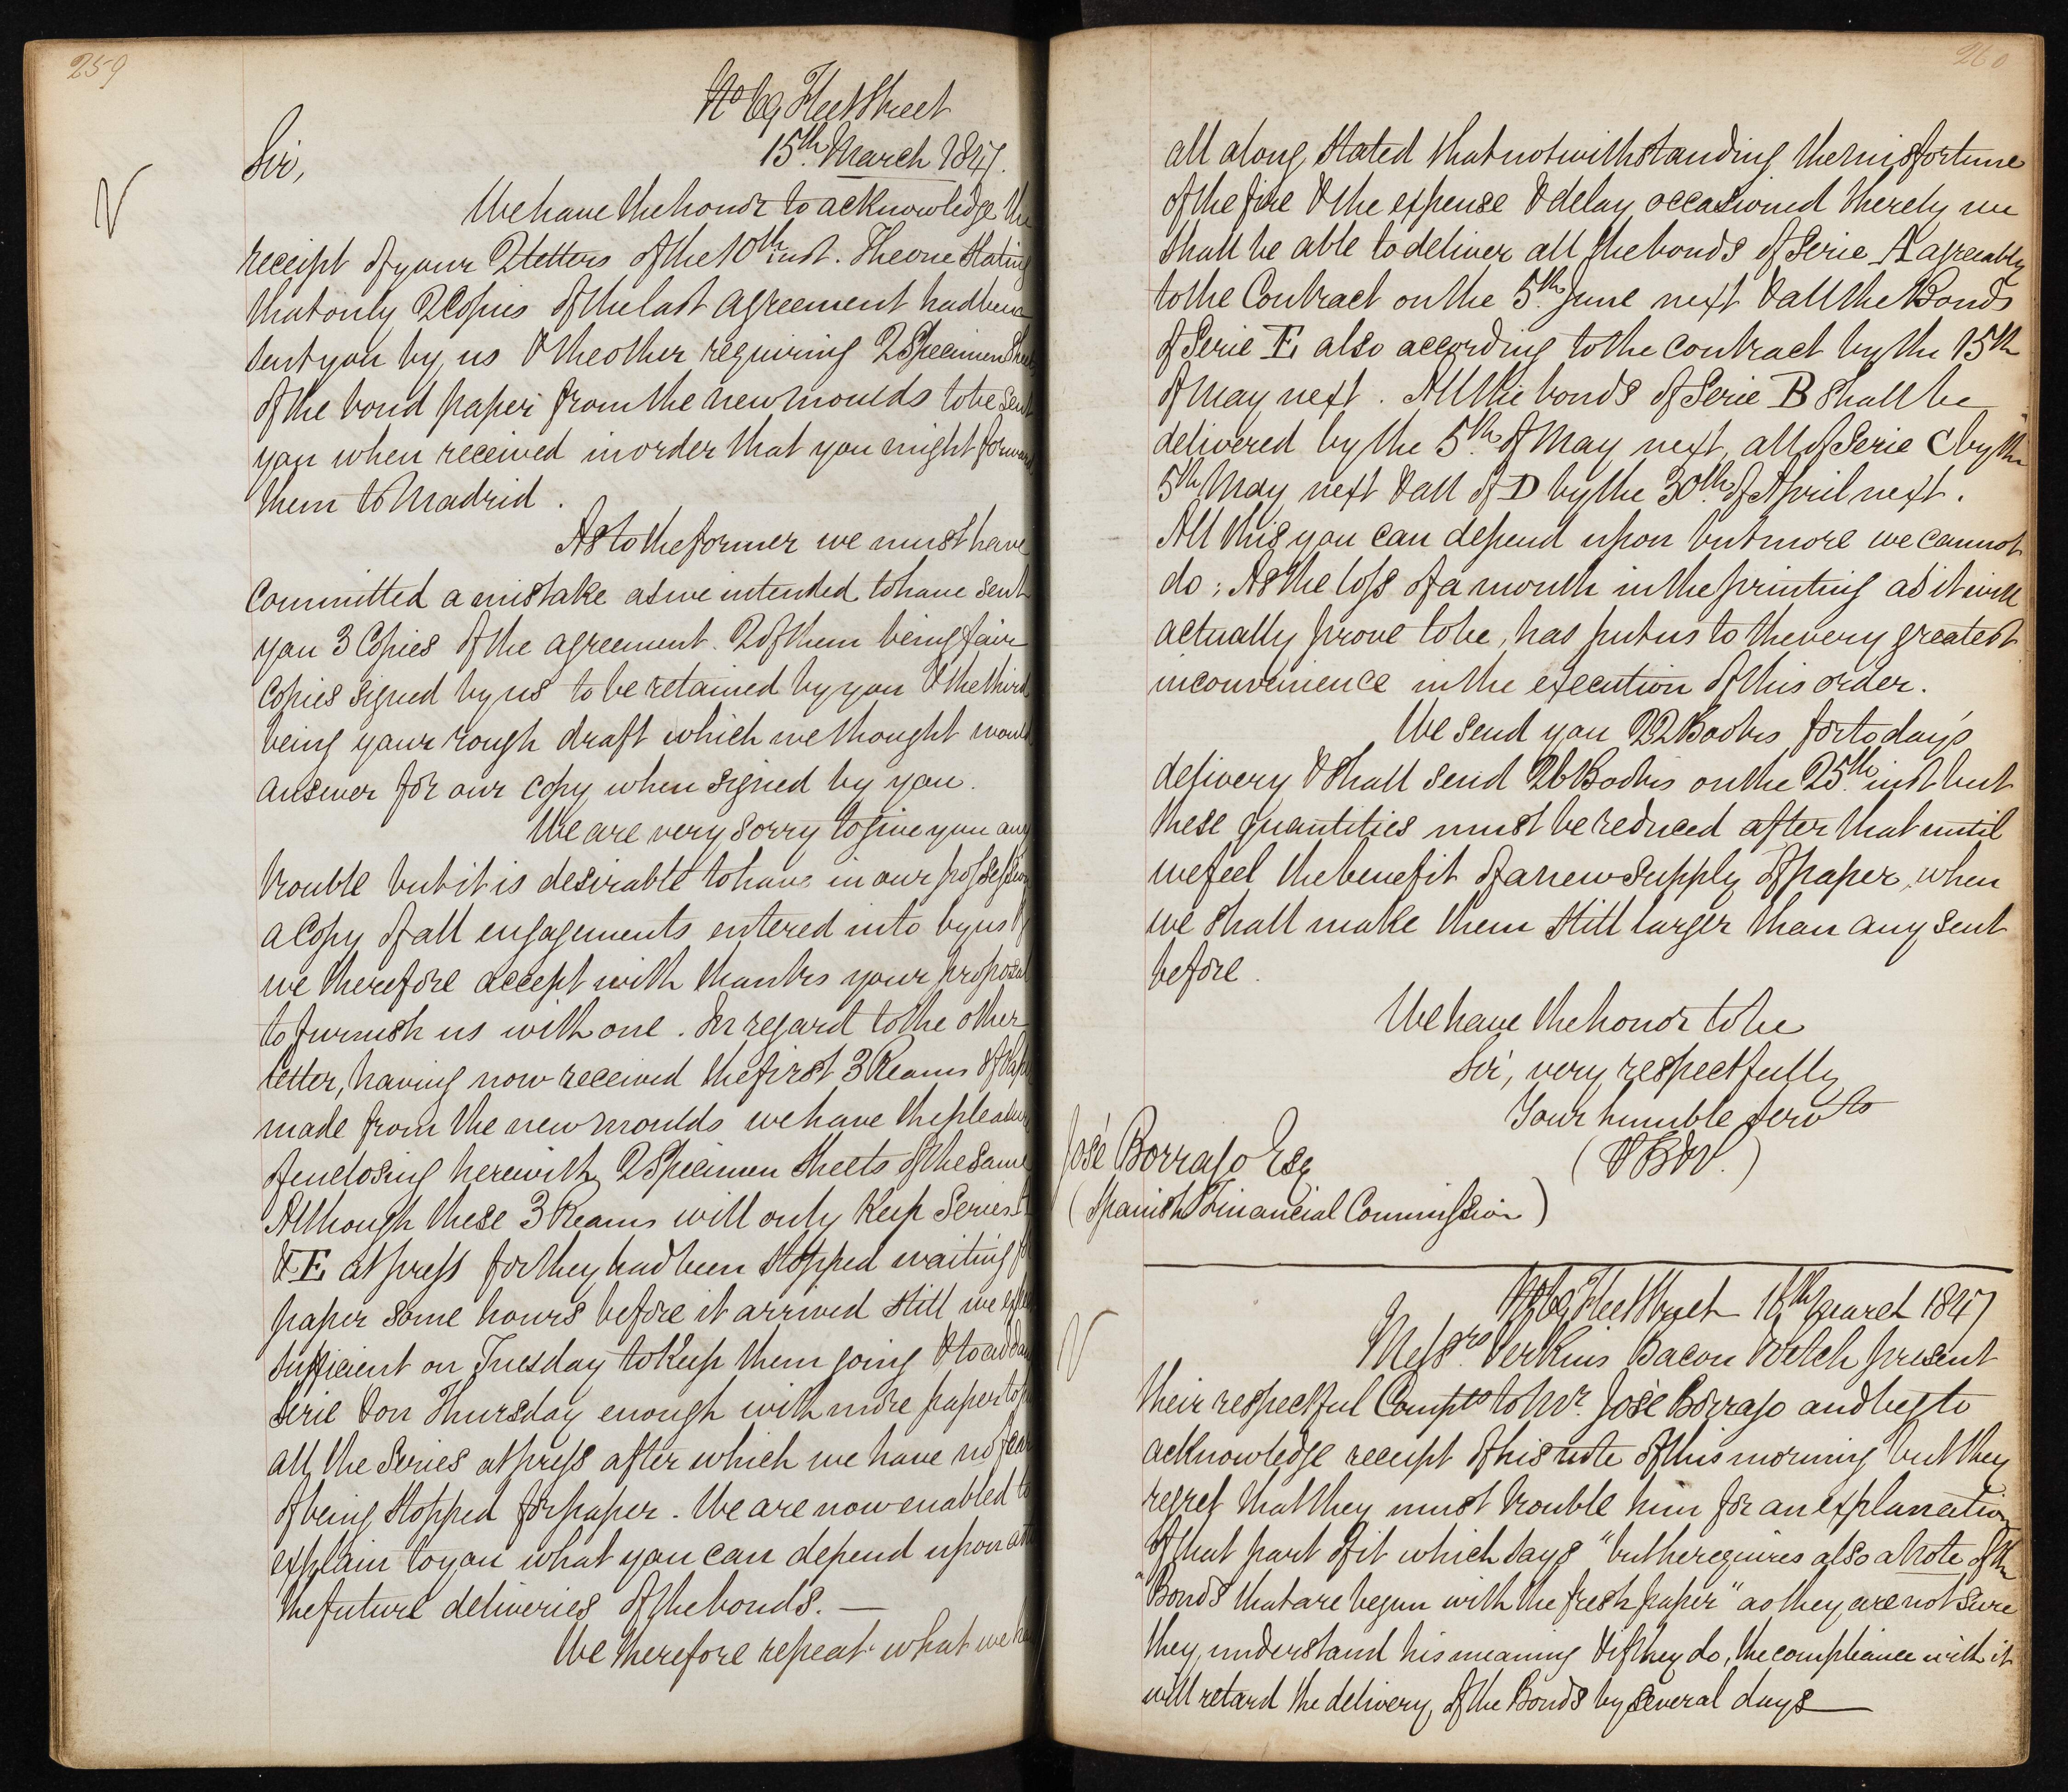 259
No 69 Fleet Street
15th March 1847.
Sir,
We have the honor to acknowledge the
receipt of your 2 letters of the 10th inst. The one stating
that only 2 Copies of the last agreement had been
sent you by us & the other requiring 2 Specimen Sheets
of the bond paper from the new moulds to be sent
you when received in order that you might forward
them to Madrid.
As to the former we must have
committed a mistake as we intended to have sent
you 3 Copies of the agreement. 2 of them being fair
copies signed by us to be retained by you & the third
being your rough draft which we thought would
answer for our copy when signed by you.
We are very sorry to give you any
trouble but it is desirable to have in our possession
a Copy of all engagements entered into by us &
we therefore accept with thanks your proposal
to furnish us with one. In regard to the other
letter, having now received the first 3 Reams of Paper
made from the new moulds we have the pleasure
of enclosing herewith 2 Specimen Sheets of the same
Although these 3 Reams will only Keep Series
& E at press for they had been stopped waiting for
paper some hours before it arrived still we expect
sufficient on Tuesday to Keep them going & to add
Serie & on Thursday enough with more paper to
all the Series at press after which we have no fear
of being stopped for paper. We are now enabled to
explain to you what you can depend upon
the future deliveries of the bonds. —
We therefore repeat what we have
260
all along stated that notwithstanding the misfortune
of the fire & the expense & delay occasioned thereby we
shall be able to deliver all the bonds of Serie A agreeably
to the Contract on the 5th June next & all the Bonds
of Serie E also according to the contract by the 15th
of May next. All the bonds of Serie B shall be
delivered by the 5th of May next, all of Serie C by the
5th May next & all of D by the 30th of April next.
All this you can depend upon but more we cannot
do; As the loss of a month in the printing as it will
actually prove to be, has put us to the very greatest
inconvenience in the execution of this order.
We send you 22 Books for to day's
delivery & shall send 26 Books on the 25th inst but
these quantities must be reduced after that until
we feel the benefit of a new supply of paper, when
we shall make them still larger than any sent
before.
We have the honor to be
Sir, very respectfully
Your humble servts
(PB&P.)
José Borrajo Esq
(Spanish Financial Commission)
No 69 Fleet Street 16th March 1847
Messrs. Perkins Bacon & Petch present
their respectful Compts to Mr. José Borrajo and beg to
acknowledge receipt of his note of this morning but they
regret that they must trouble him for an explanation
of that part of it which says "but he requires also a Note of the
"Bonds that are begun with the fresh paper" as they are not sure
they understand his meaning & if they do, the compliance with it
will retard the delivery of the Bonds by several days —